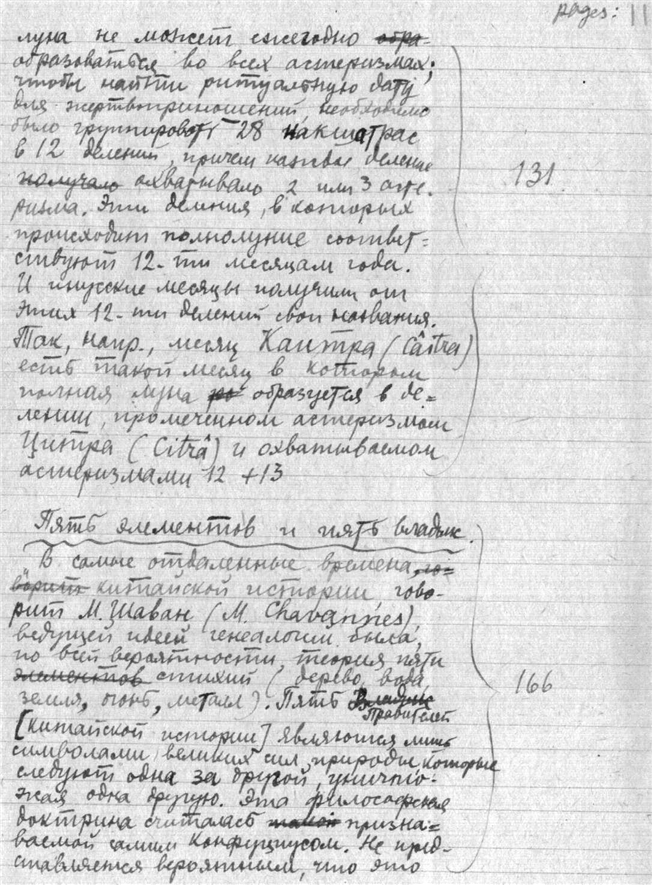 pages: 11
луна не может ежегодно обра-
образоваться во всех астеризмах;
чтобы найти ритуальную дату
для жертвоприношений, необходимо
было группировать 28 накшатрас
в 12 делений, причем каждое деление
получало охватывало 2 или 3 асте-
ризма. Эти деления, в которых
131
происходит полнолуние соответ=
ствуют 12-ти месяцам года.
И индусские месяцы получили от
этих 12-ти делений свои названия.
Так, напр., месяц Каитра (Câitra)
есть такой месяц в котором
полная луна образуется в де=
лении, промеченном астеризмом
Цитра (Citrâ) и охватываемом
астеризмами 12 + 13
Пять элементов и пять владык.
В самые отдаленные времена, го-
ворит китайской истории гово-
рит М. Шаван (M. Chavannes),
ведущей идеей генеалогии была,
по всей вероятности, теория пяти
элементов стихий (дерево, вода,
166
земля, огонь, металл). Пять Владык
Правителей
[китайской истории] являются лишь
символами великих сил природы которые
следуют одна за другой, уничто-
жая одна другую. Эта философская
доктрина считалась призна=
ваемой самим Конфуциусом. Не пред-
ставляется вероятным, что это